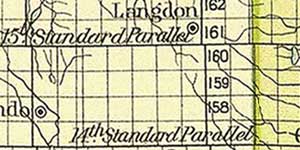 Langdon 162
15th Standard Parallel 161
160
159
ndo 158
14th Standard Parallel